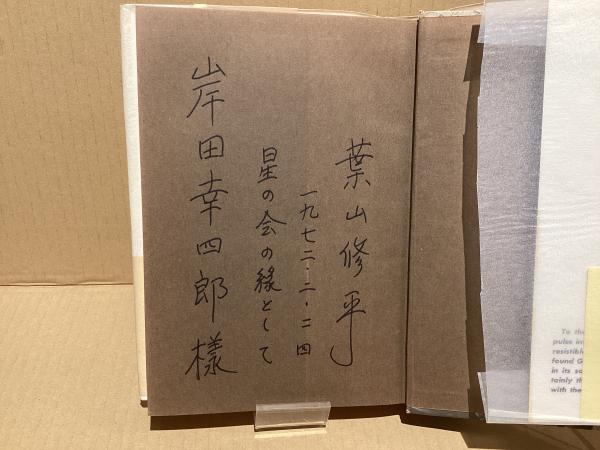 葉山修平
一九七二・二・二四
星の会の縁として
岸田幸四郎様
To the
pulse in
resistible
found G
in its so
tainly th
with the